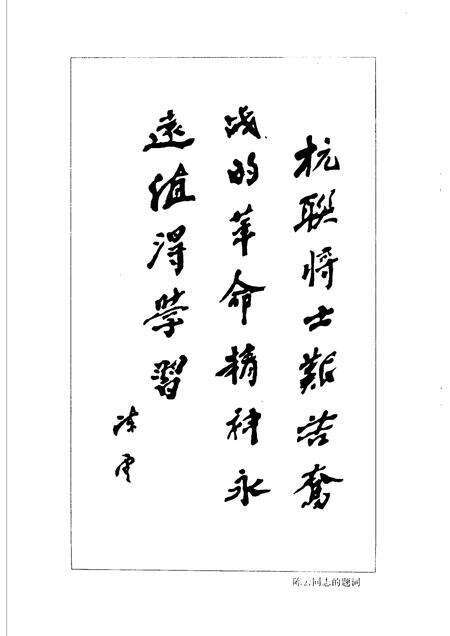 抗聯将士艱苦奮
战的革命精神永
遠值得學習
陈雲
陈云同志的题词